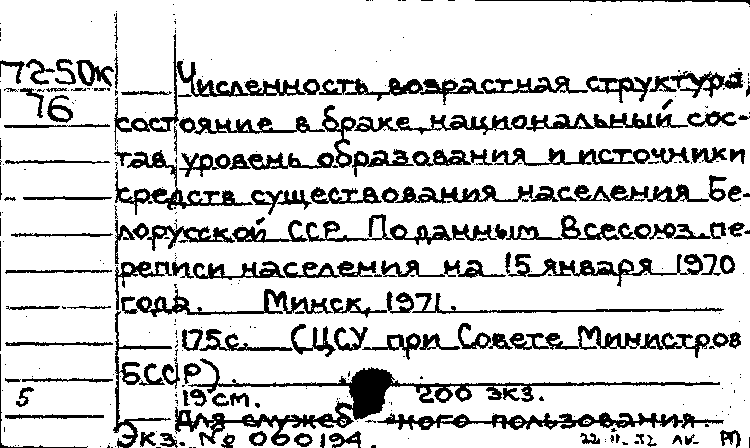 72-50к
76
Численность, возрастная структура,
состояние в браке, национальный сос-
тав, уровень образования и источники
средств существования населения Бе-
лорусской ССР. По данным Всесоюз. пе-
реписи населения на 15 января 1970
года. Минск, 1971.
175с. (ЦСУ при Совете Министров
БССР).
5 19 см. 200 экз.
Для служебного пользования.
Экз. № 000194.